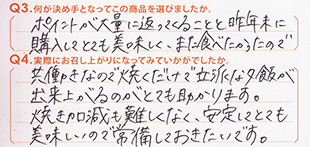 Q3.何が決め手となってこの商品を選びましたか。
ポイントが大量に返ってくることと昨年末に
購入してとても美味しく、また食べたかったので
Q4.実際にお召し上がりになってみていかがでしたか。
共働きなので焼くだけで立派な夕飯が
出来上がるのがとても助かります。
焼き加減も難しくなく、安定してとても
美味しいので常備しておきたいです。